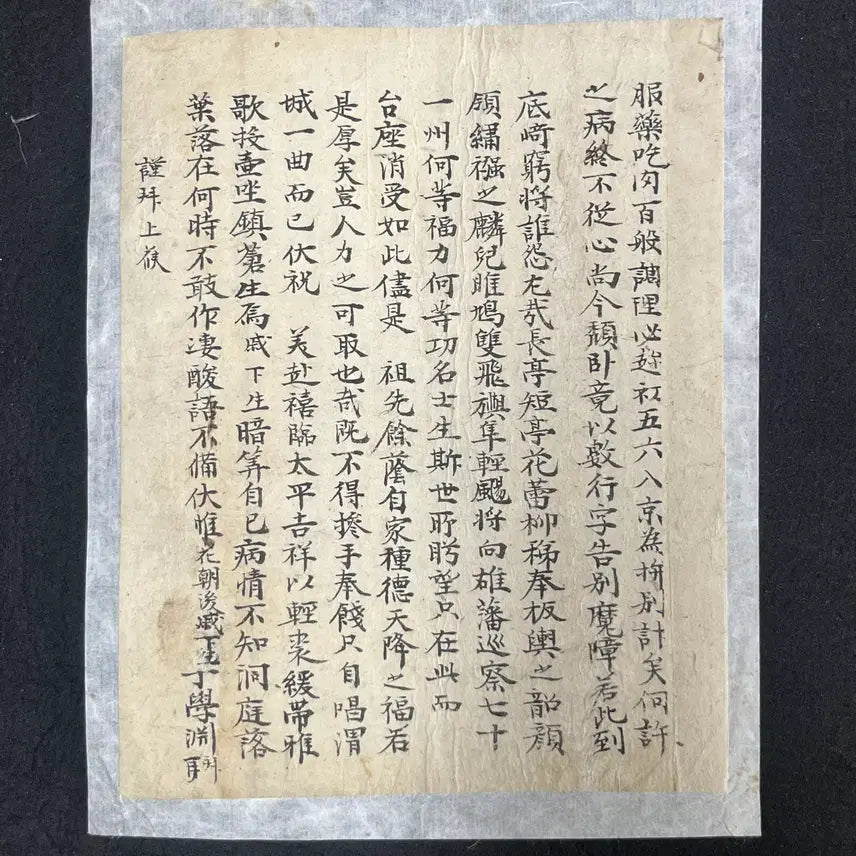 服藥吃肉百般調理必趁初五六入京為拚別計矣何許
之病終不從心尚今頹臥竟以數行字告別魔障若此到
底崎窮將誰怨尤哉長亭短亭花蕾柳稊奉板輿之韶顏
領繡襁之麟兒雎鳩雙飛旟隼輕颺將向雄藩巡察七十
一州何等福力何等功名士生斯世所眄望只在此而
台座消受如此儘是 祖先餘蔭自家種德天降之福若
是厚矣豈人力之可取也哉既不得摻手奉餞只自唱渭
城一曲而已伏祝 美赴禧臨太平吉祥以輕裘緩帶雅
歌投壺坐鎮蒼生焉戚下生暗算自己病情不知洞庭落
葉落在何時不敢作凄酸語不備伏惟花朝後戚下生丁學淵拜
謹拜上候